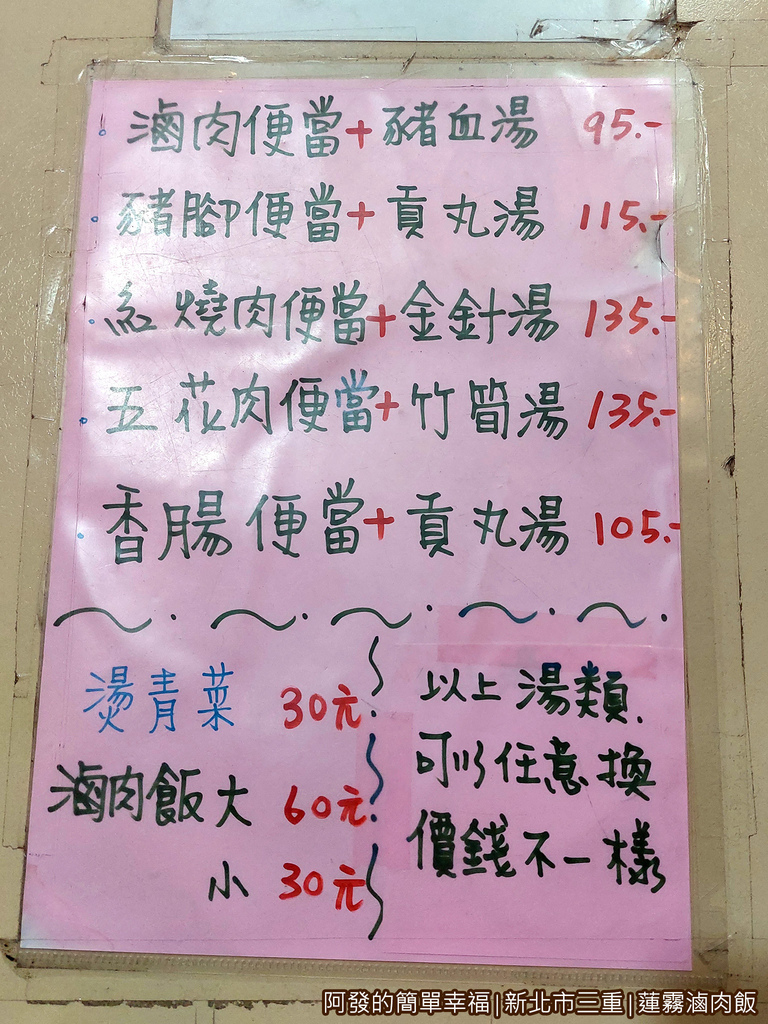 滷肉便當+豬血湯 95.-
豬腳便當+貢丸湯 115.-
紅燒肉便當+金針湯 135.-
五花肉便當+竹筍湯 135.-
香腸便當+貢丸湯 105.-
燙青菜 30元
滷肉飯大 60元
小 30元
以上湯類.
可以任意換
價錢不一樣
阿發的簡單幸福|新北市三重|蓮霧滷肉飯